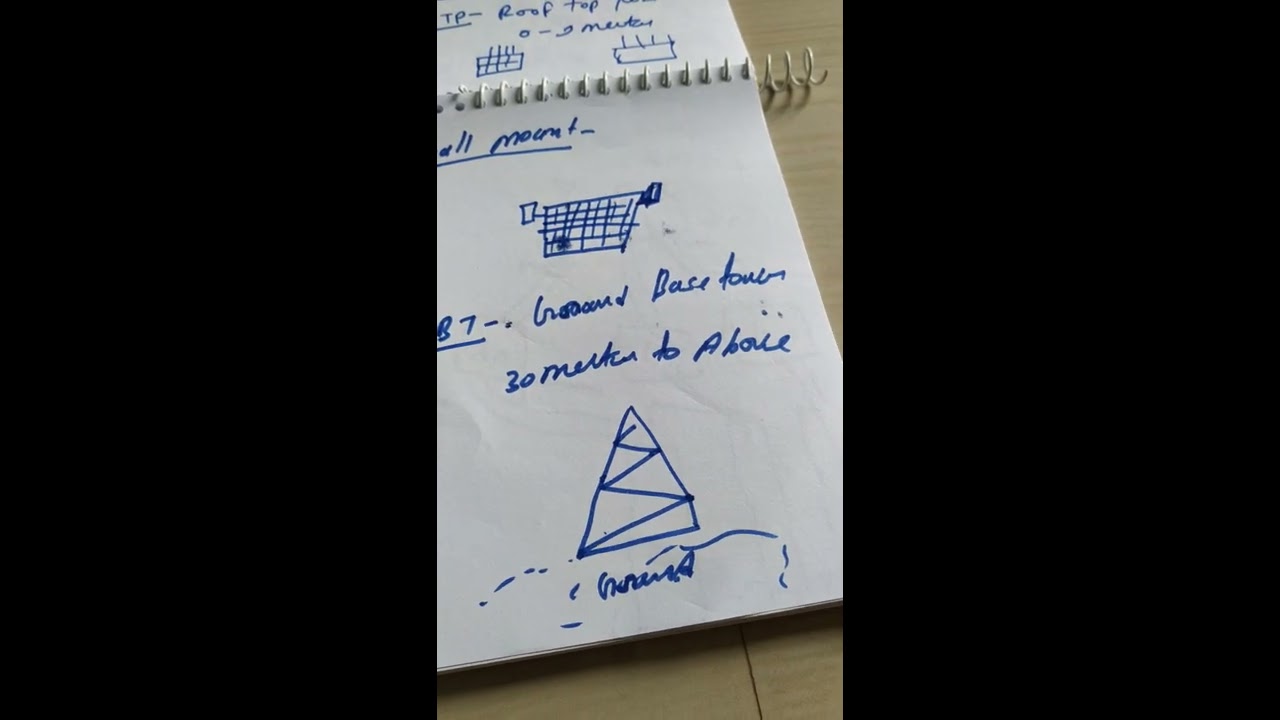 TP- Roof top
0 - 9 meter
all mount-
BT-. Ground Base tower
30 meter to Above
Ground